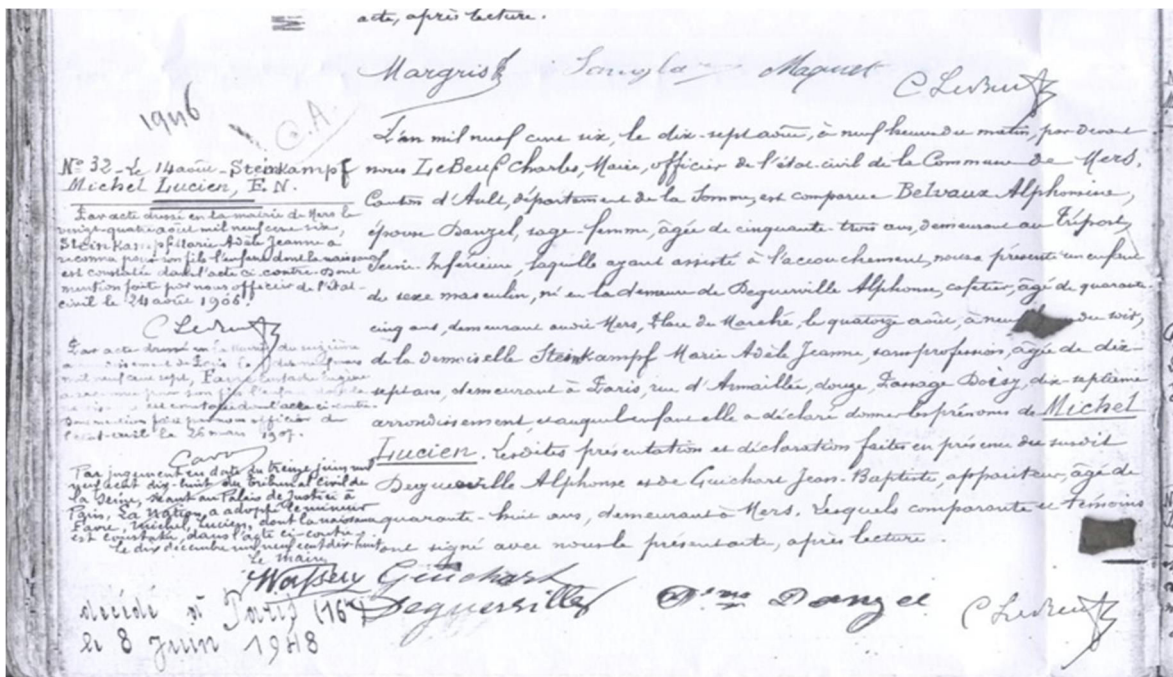 acte, après lecture.
Margrist Maquet C LeBeuf
1946
G.A.
N° 32 - Le 14 août - Steinkampf
Michel Lucien, E.N.
Par acte dressé en la mairie de Mers le
vingt-quatre août mil neuf cent six,
Steinkampf Marie Adèle Jeanne a
reconnu pour son fils l'enfant dont la naissance
est constatée dans l'acte ci-contre. Dont
mention faite par nous officier de l'état-
civil le 24 août 1906.
C LeBeuf
Par acte dressé en la mairie du seizième
arrondissement de Paris le mars
mil neuf cent sept, Favre
a reconnu pour son fils l'enfant dont la
est constatée dans l'acte ci-contre.
Dont mention faite par nous officier de
l'état-civil le 26 mars 1907.
Par jugement en date du treize juin mil
neuf cent dix-huit du Tribunal Civil de
la Seine, séant au Palais de Justice à
Paris, La Nation a adopté le mineur
Favre, Michel, Lucien, dont la naissance
est constatée, dans l'acte ci-contre.
Le dix décembre mil neuf cent dix-huit
Le Maire
décédé à Paris (16e
le 8 Juin 1948
L'an mil neuf cent six, le dix-sept août, à neuf heures du matin, par devant
nous LeBeuf Charles, Maire, officier de l'état-civil de la Commune de Mers,
Canton d'Ault, département de la Somme, est comparue Belvaux Alphonsine,
épouse Danzel, sage-femme, âgée de cinquante-trois ans, demeurant au Tréport,
Seine-Inférieure, laquelle ayant assisté à l'accouchement, nous a présenté un enfant
du sexe masculin, né en la demeure de Deguerville Alphonse, cafetier, âgé de quarante-
cinq ans, demeurant audit Mers, Place du Marché, le quatorze août, à neuf du soir,
de la demoiselle Steinkampf Marie Adèle Jeanne, sans profession, âgée de dix-
sept ans, demeurant à Paris, rue d'Armaillé, douze, Passage Doisy, dix-septième
arrondissement, et auquel enfant elle a déclaré donner les prénoms de Michel
Lucien. Lesdites présentation et déclaration faites en présence du susdit
Deguerville Alphonse et de Guichart Jean-Baptiste, appariteur, âgé de
quarante-huit ans, demeurant à Mers. Lesquels comparante et témoins
ont signé avec nous le présent acte, après lecture.
Guichart
Deguerville Dme Danzel C LeBeuf